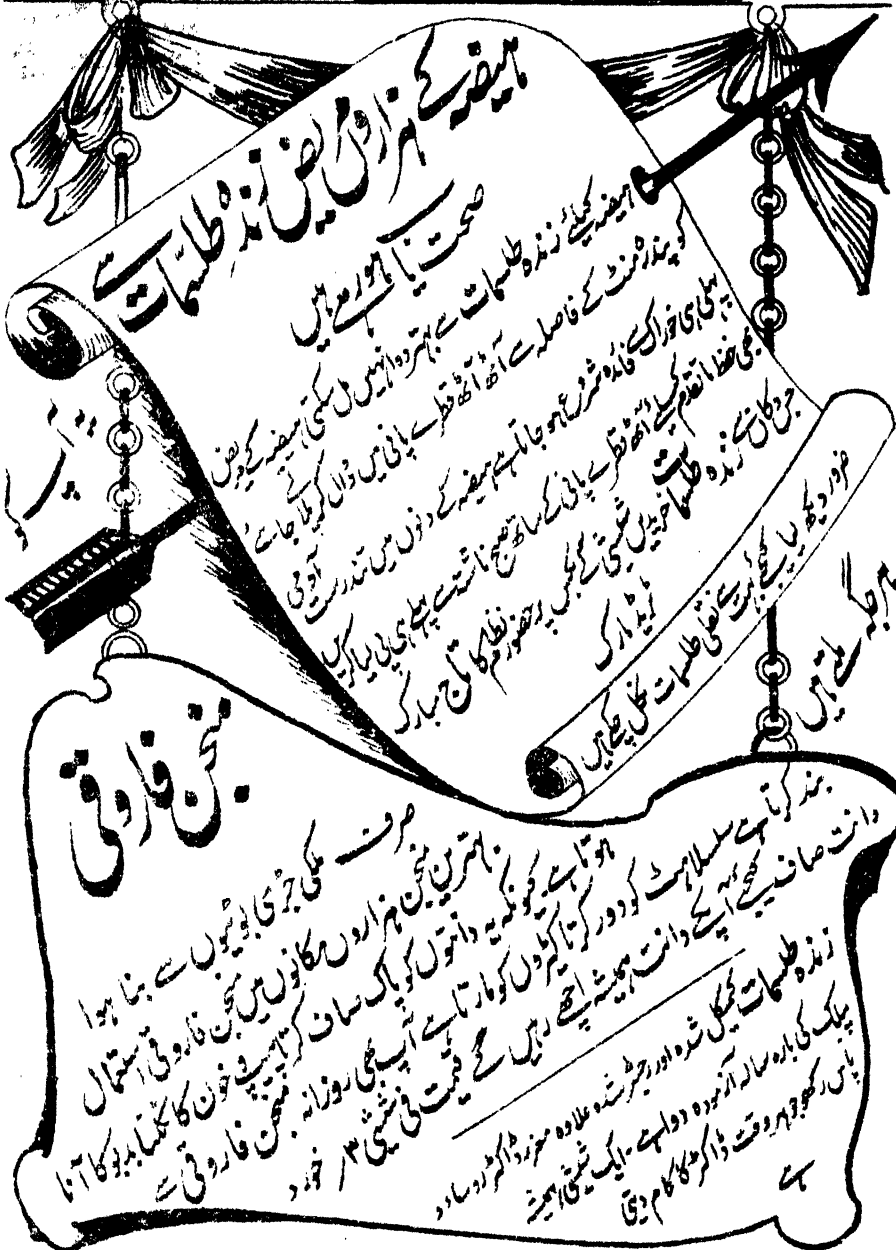 ہیضہ کے ہزاروں مریض زندہ طلسمات سے
صحت یاب ہو رہے ہیں
ہیضہ کیلئے زندہ طلسمات سے بہتر دوا نہیں مل سکتی ہیضہ کے مریض
کو پندرہ منٹ کے فاصلہ سے آٹھ آٹھ قطرے پانی میں ڈال کر پلا جائے
پہلی ہی خوراک سے فائدہ شروع ہو جاتا ہے ہیضہ کے دنوں میں تندرست آدمی
بھی حفظ ماتقدم کیلئے آٹھ قطرے پانی کے ساتھ صبح ناشتہ سے پہلے ہی پی لیا کریں
جس دکان سے زندہ طلسمات خریدیں شیشی کے بکس پر حضور نظام کا تاج مبارک
ٹریڈ مارک
ضرور دیکھ لیا کیجئے بہت سے نقلی طلسمات نکل چکے ہیں
ہر جگہ ملتے ہیں
منجن فاروقی
صرف ملکی جڑی بوٹیوں سے بنا ہوا
بہترین منجن ہزاروں مکانوں میں منجن فاروقی استعمال
ہوتا ہے کیونکہ یہ دانتوں کو پاک صاف کرتا پیپ و خون کا نکلنا بدبو کا آنا
بند کرتا ہے سلسلاہٹ کو دور کرتا کیڑوں کو مارتا ہے آپ بھی روزانہ منجن فاروقی سے
دانت صاف کیجئے آپکے دانت ہمیشہ اچھے رہیں گے قیمت فی شیشی ۳؍ خورد
زندہ طلسمات کیمیکل شدہ اور رجسٹر شدہ علاوہ معزز ڈاکٹر
پبلک کی بارہ سالہ آزمودہ دوا ہے ۔ ایک شیشی ہمیشہ
پاس رکھو جو ہر وقت ڈاکٹر کا کام دیتی
ہے